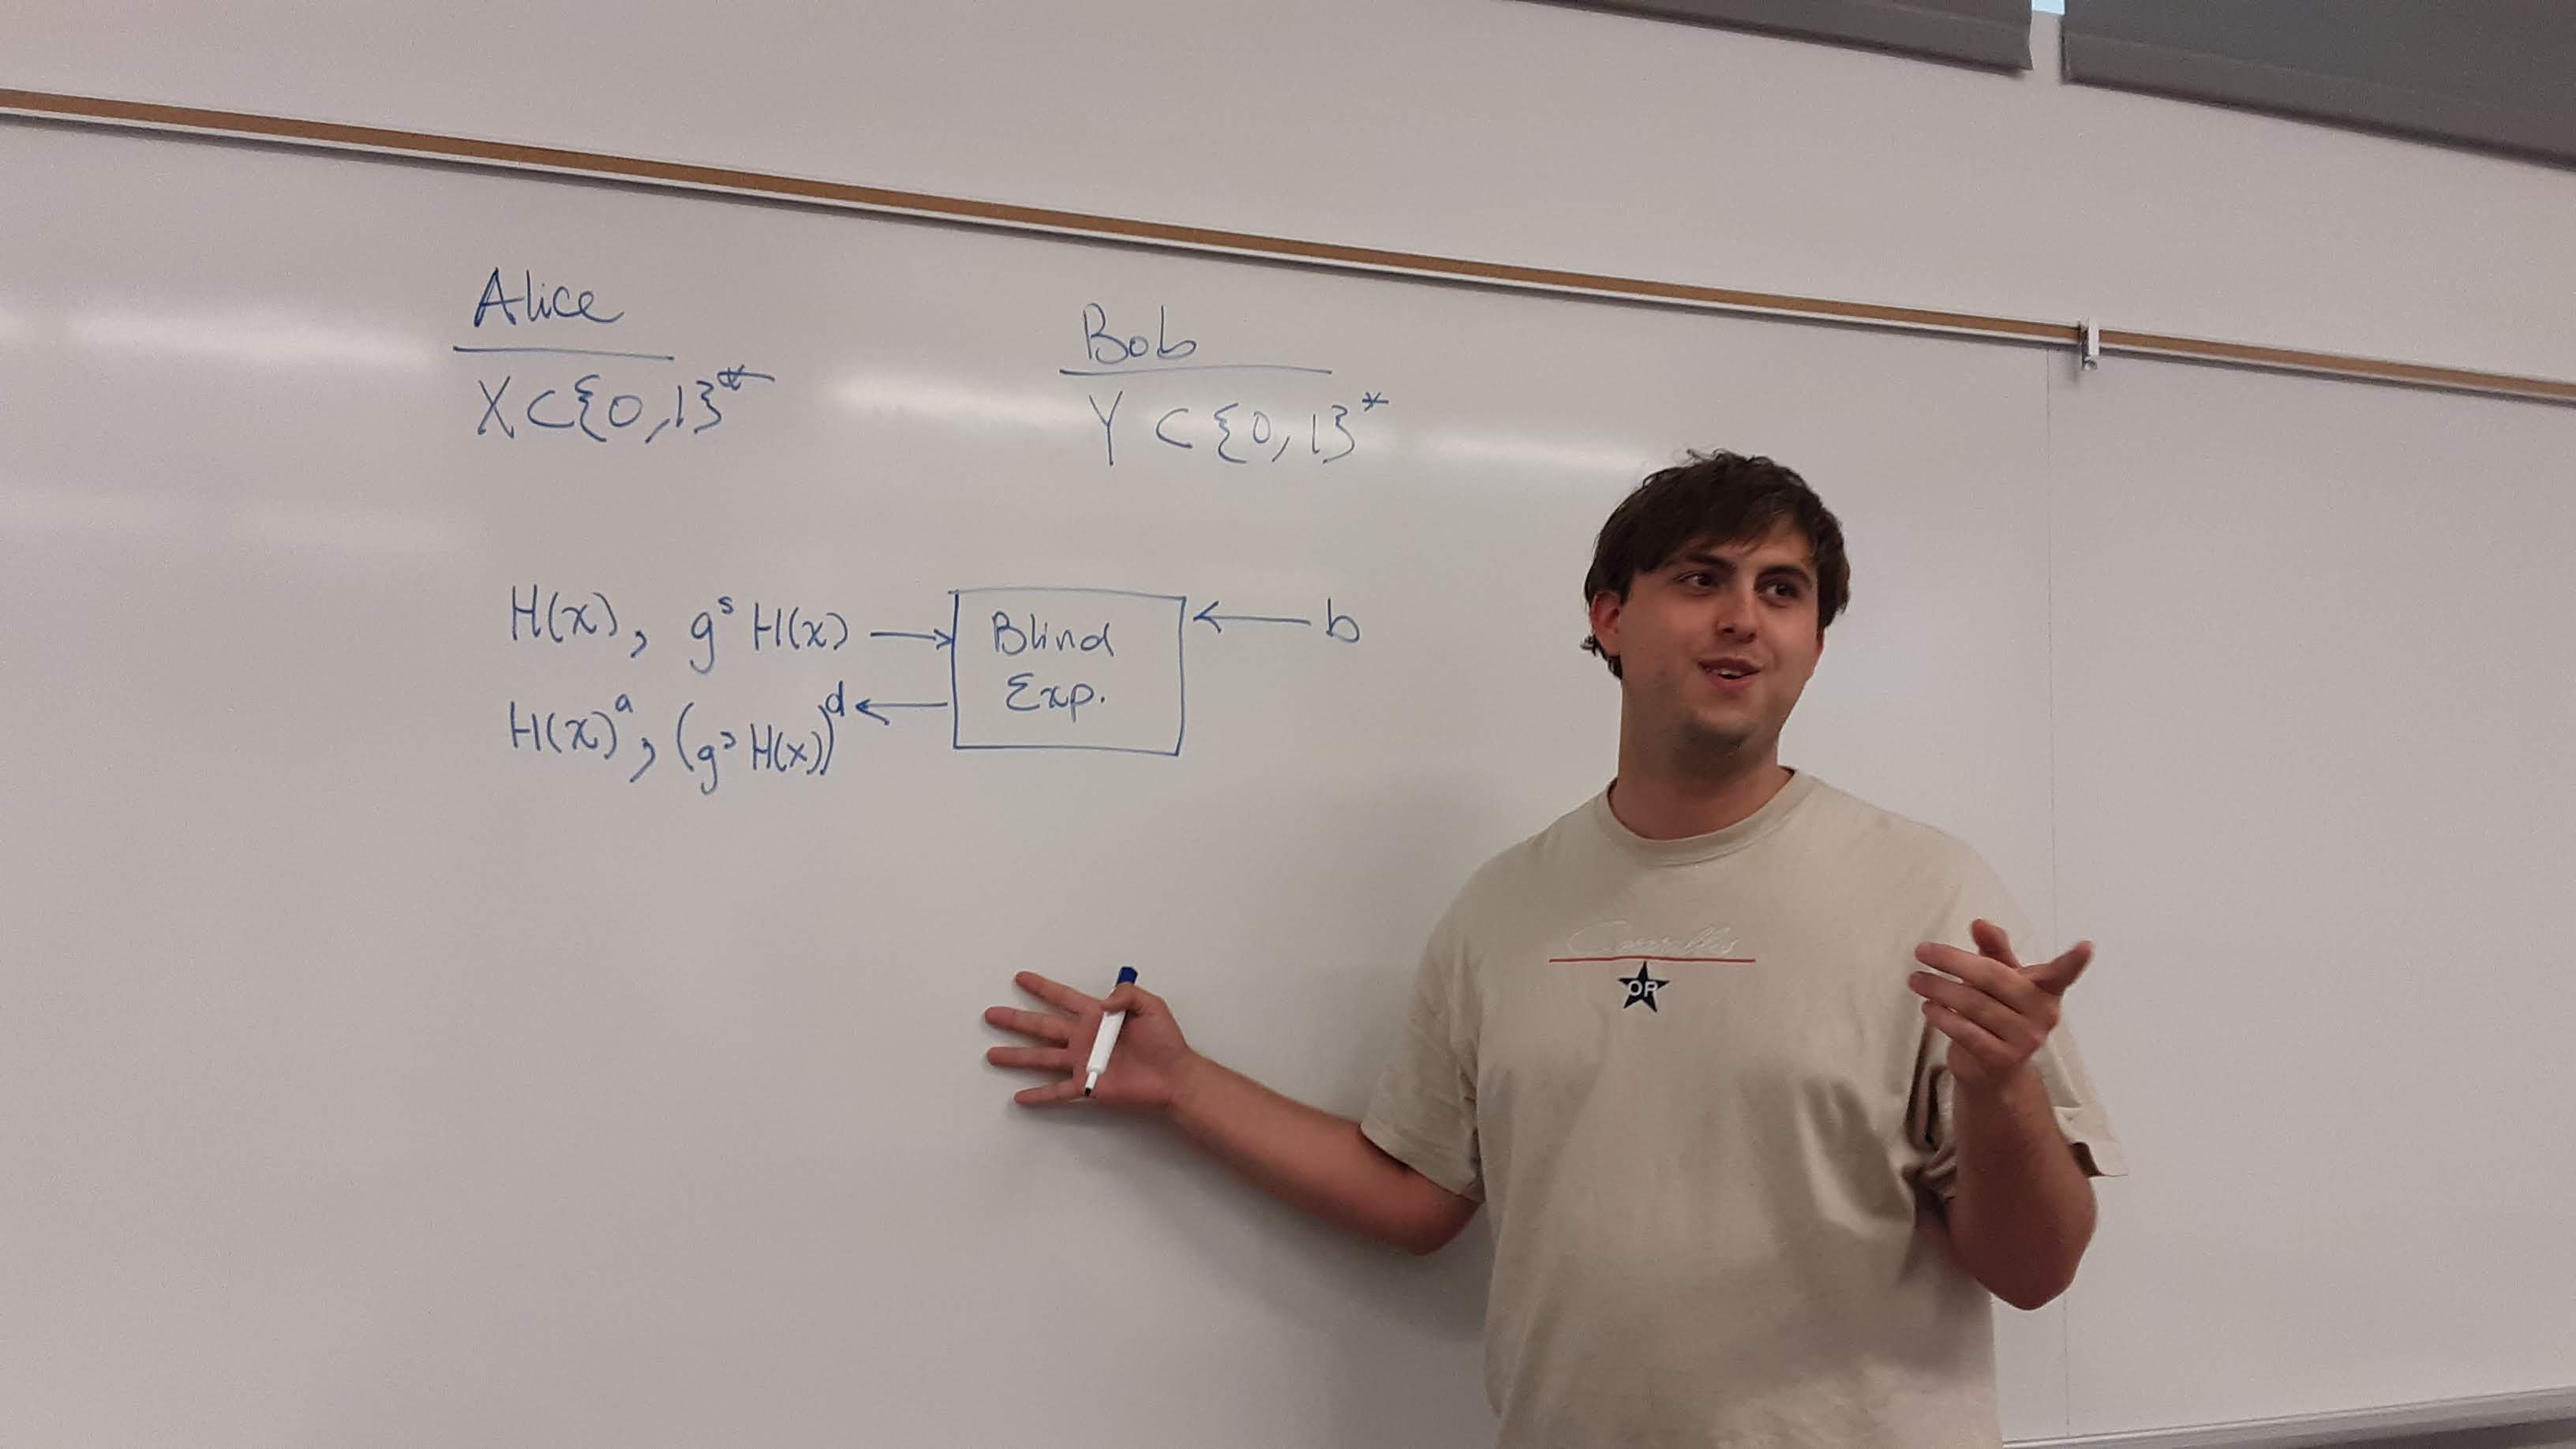 Alice
X⊂{0,1}*
Bob
Y⊂{0,1}*
H(x), gˢ H(x) → Blind Exp. ← b
H(x)ᵃ, (gˢ H(x))ᵈ ←
Corvallis
OR